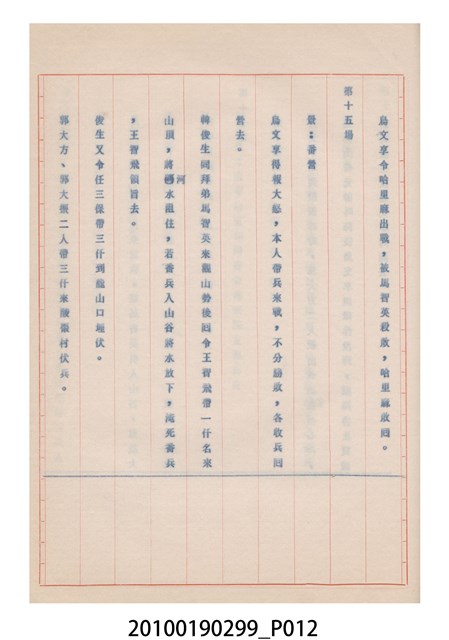 烏文享令哈里麻出戰,被馬智英殺敗,哈里麻敗囘。
第十五場
景:番營
烏文享得報大怒,本人帶兵來戰,不分勝敗,各收兵囘
營去。
韓俊生同拜弟馬智英來觀山勢後囘令王智飛帶一仟名來
山頂,將河水阻住,若番兵入山谷將水放下,淹死番兵
,王智飛領旨去。
俊生又令任三保帶三仟到龍山口埋伏。
郭大方、郭大 二人帶三仟來 張村伏兵。
20100190299_P012